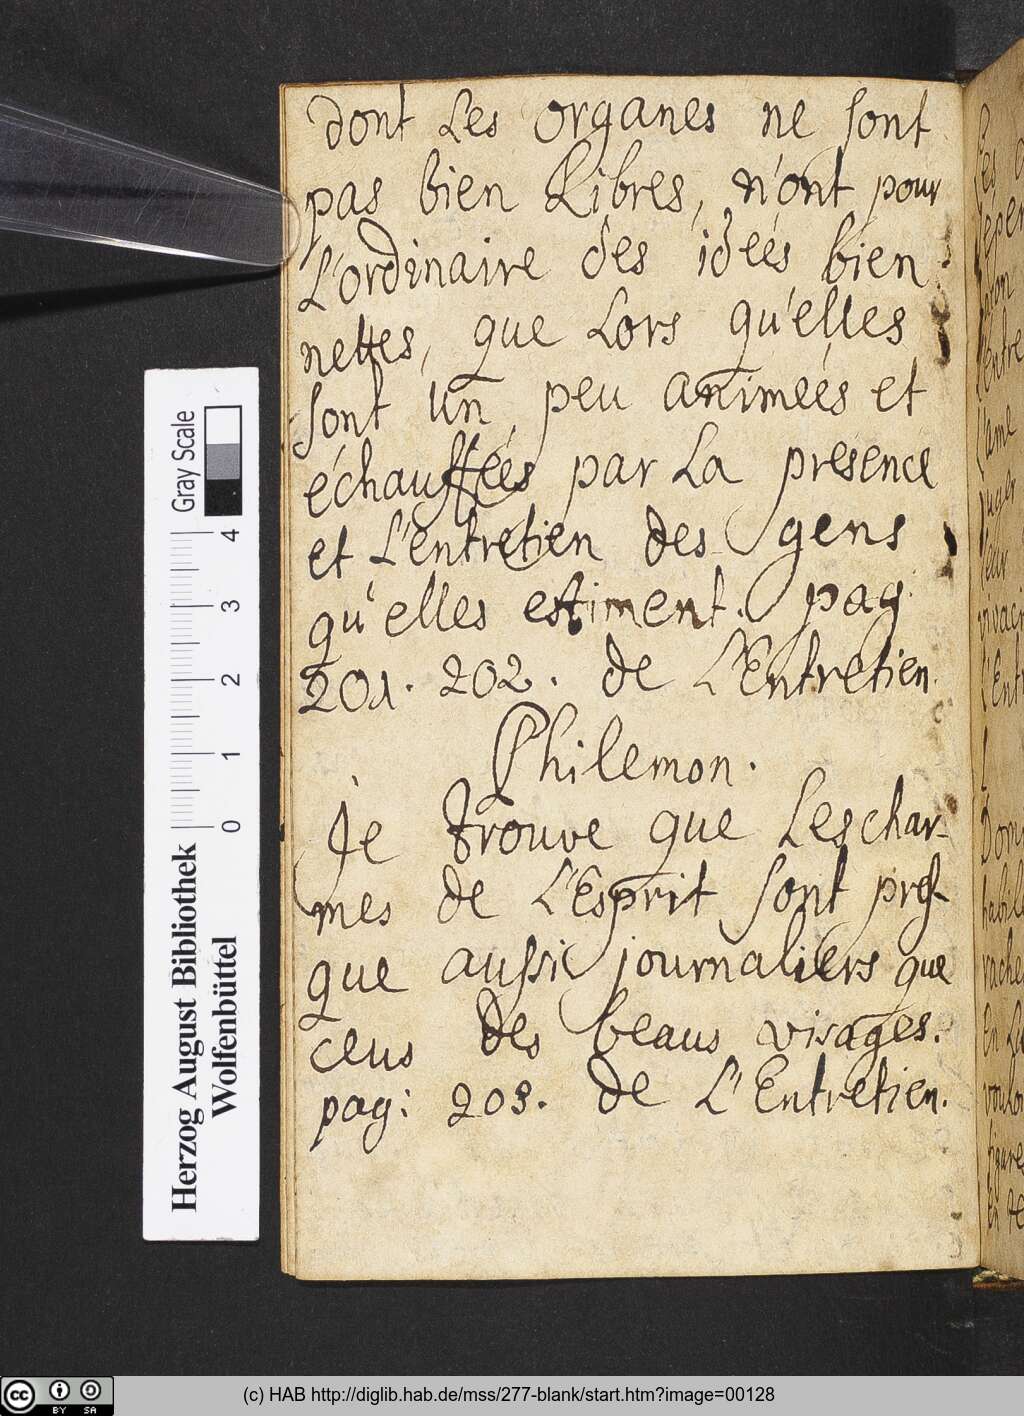 dont Les organes ne sont
pas bien Libres, n'ont pour
L'ordinaire des ideés bien
nettes, que Lors qu'elles
sont un peu animeés et
échauffeés par La presence
et L'entretien des gens
qu'elles estiment. pag:
201. 202. de L'Entretien.
Philemon.
Je trouve que Les char-
mes de L'Esprit sont pres-
que aussi journaliers que
ceus des beaus visages.
pag: 203. de L'Entretien.
Gray Scale
0 1 2 3 4
Herzog August Bibliothek
Wolfenbüttel
(c) HAB http://diglib.hab.de/mss/277-blank/start.htm?image=00128
cc BY SA